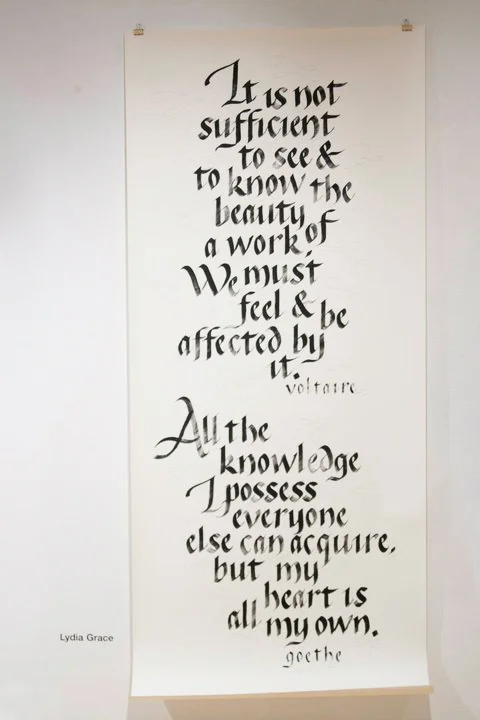 It is not
sufficient
to see &
to know the
beauty
a work of
We must
feel & be
affected by
it.
voltaire
All the
knowledge
I possess
everyone
else can acquire,
but my
heart is
all my own.
goethe
Lydia Grace